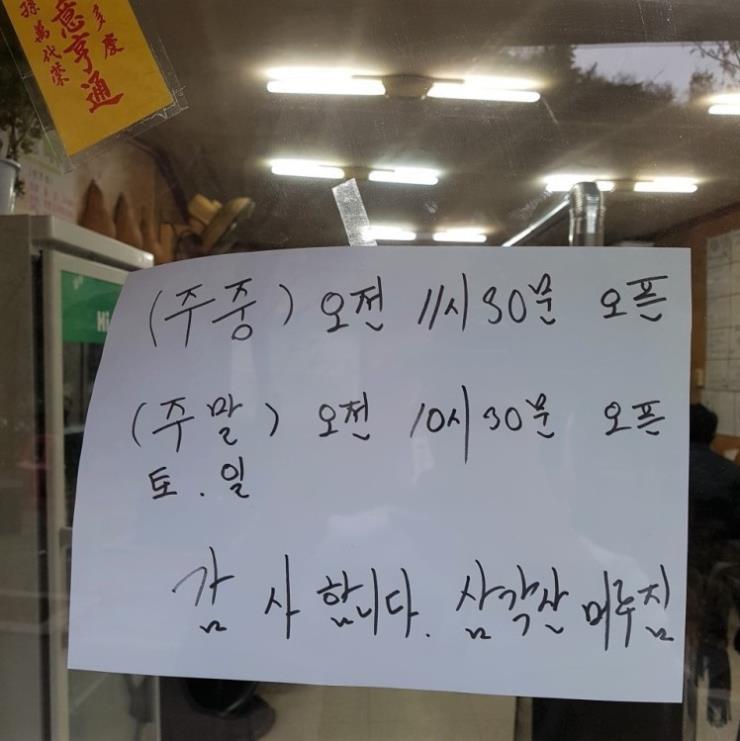 多慶
意亨通
孫萬代榮
Hi
(주중) 오전 11시30분 오픈
(주말) 오전 10시30분 오픈
토.일
감사합니다. 삼각산 머루집